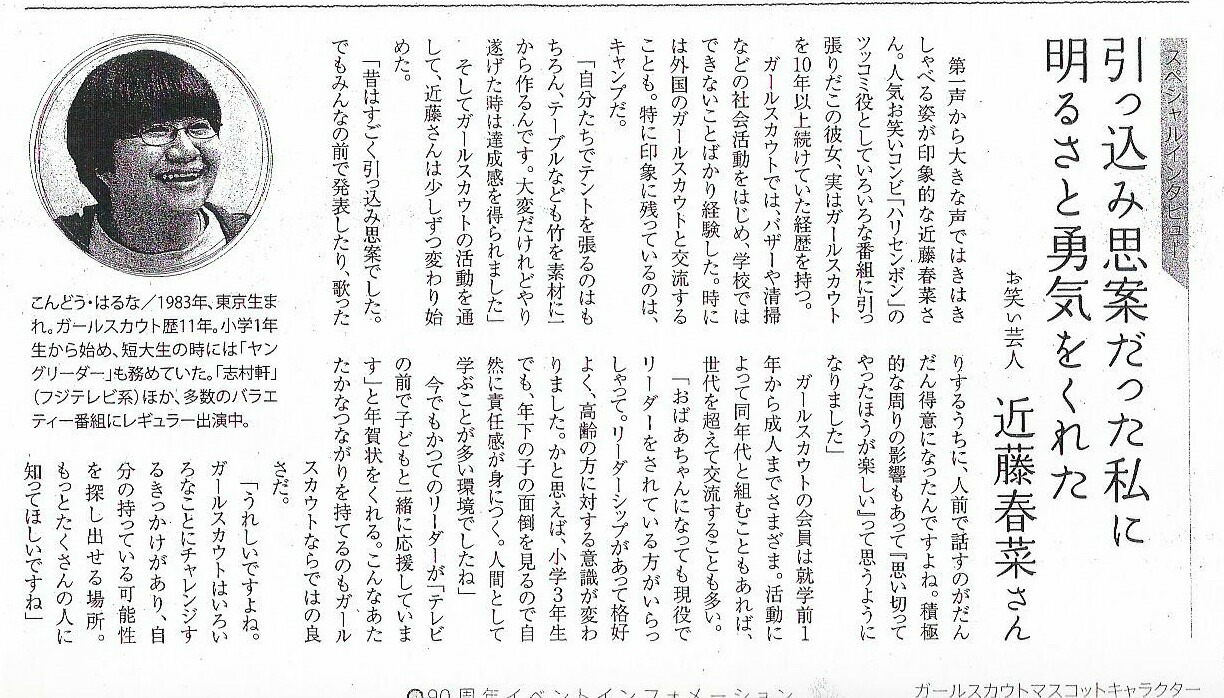 スペシャルインタビュー
引っ込み思案だった私に
明るさと勇気をくれた
お笑い芸人 近藤春菜さん
第一声から大きな声ではきはき
しゃべる姿が印象的な近藤春菜さ
ん。人気お笑いコンビ「ハリセンボン」の
ツッコミ役としていろいろな番組に引っ
張りだこの彼女、実はガールスカウト
を10年以上続けていた経歴を持つ。
ガールスカウトでは、バザーや清掃
などの社会活動をはじめ、学校では
できないことばかり経験した。時に
は外国のガールスカウトと交流する
ことも。特に印象に残っているのは、
キャンプだ。
「自分たちでテントを張るのはも
ちろん、テーブルなども竹を素材に一
から作るんです。大変だけれどやり
遂げた時は達成感を得られました」
そしてガールスカウトの活動を通
して、近藤さんは少しずつ変わり始
めた。
「昔はすごく引っ込み思案でした。
でもみんなの前で発表したり、歌った
りするうちに、人前で話すのがだん
だん得意になったんですよね。積極
的な周りの影響もあって『思い切って
やったほうが楽しい』って思うように
なりました」
ガールスカウトの会員は就学前1
年から成人までさまざま。活動に
よって同年代と組むこともあれば、
世代を超えて交流することも多い。
「おばあちゃんになっても現役で
リーダーをされている方がいらっ
しゃって。リーダーシップがあって格好
よく、高齢の方に対する意識が変わ
りました。かと思えば、小学3年生
でも、年下の子の面倒を見るので自
然に責任感が身につく。人間として
学ぶことが多い環境でしたね」
今でもかつてのリーダーが「テレビ
の前で子どもと一緒に応援していま
す」と年賀状をくれる。こんなあた
たかなつながりを持てるのもガール
スカウトならではの良
さだ。
「うれしいですよね。
ガールスカウトはいろい
ろなことにチャレンジす
るきっかけがあり、自
分の持っている可能性
を探し出せる場所。
もっとたくさんの人に
知ってほしいですね」
こんどう・はるな／1983年、東京生ま
れ。ガールスカウト歴11年。小学1年
生から始め、短大生の時には「ヤン
グリーダー」も務めていた。「志村軒」
(フジテレビ系)ほか、多数のバラエ
ティー番組にレギュラー出演中。
90周年イベントインフォメーション
ガールスカウトマスコットキャラクター